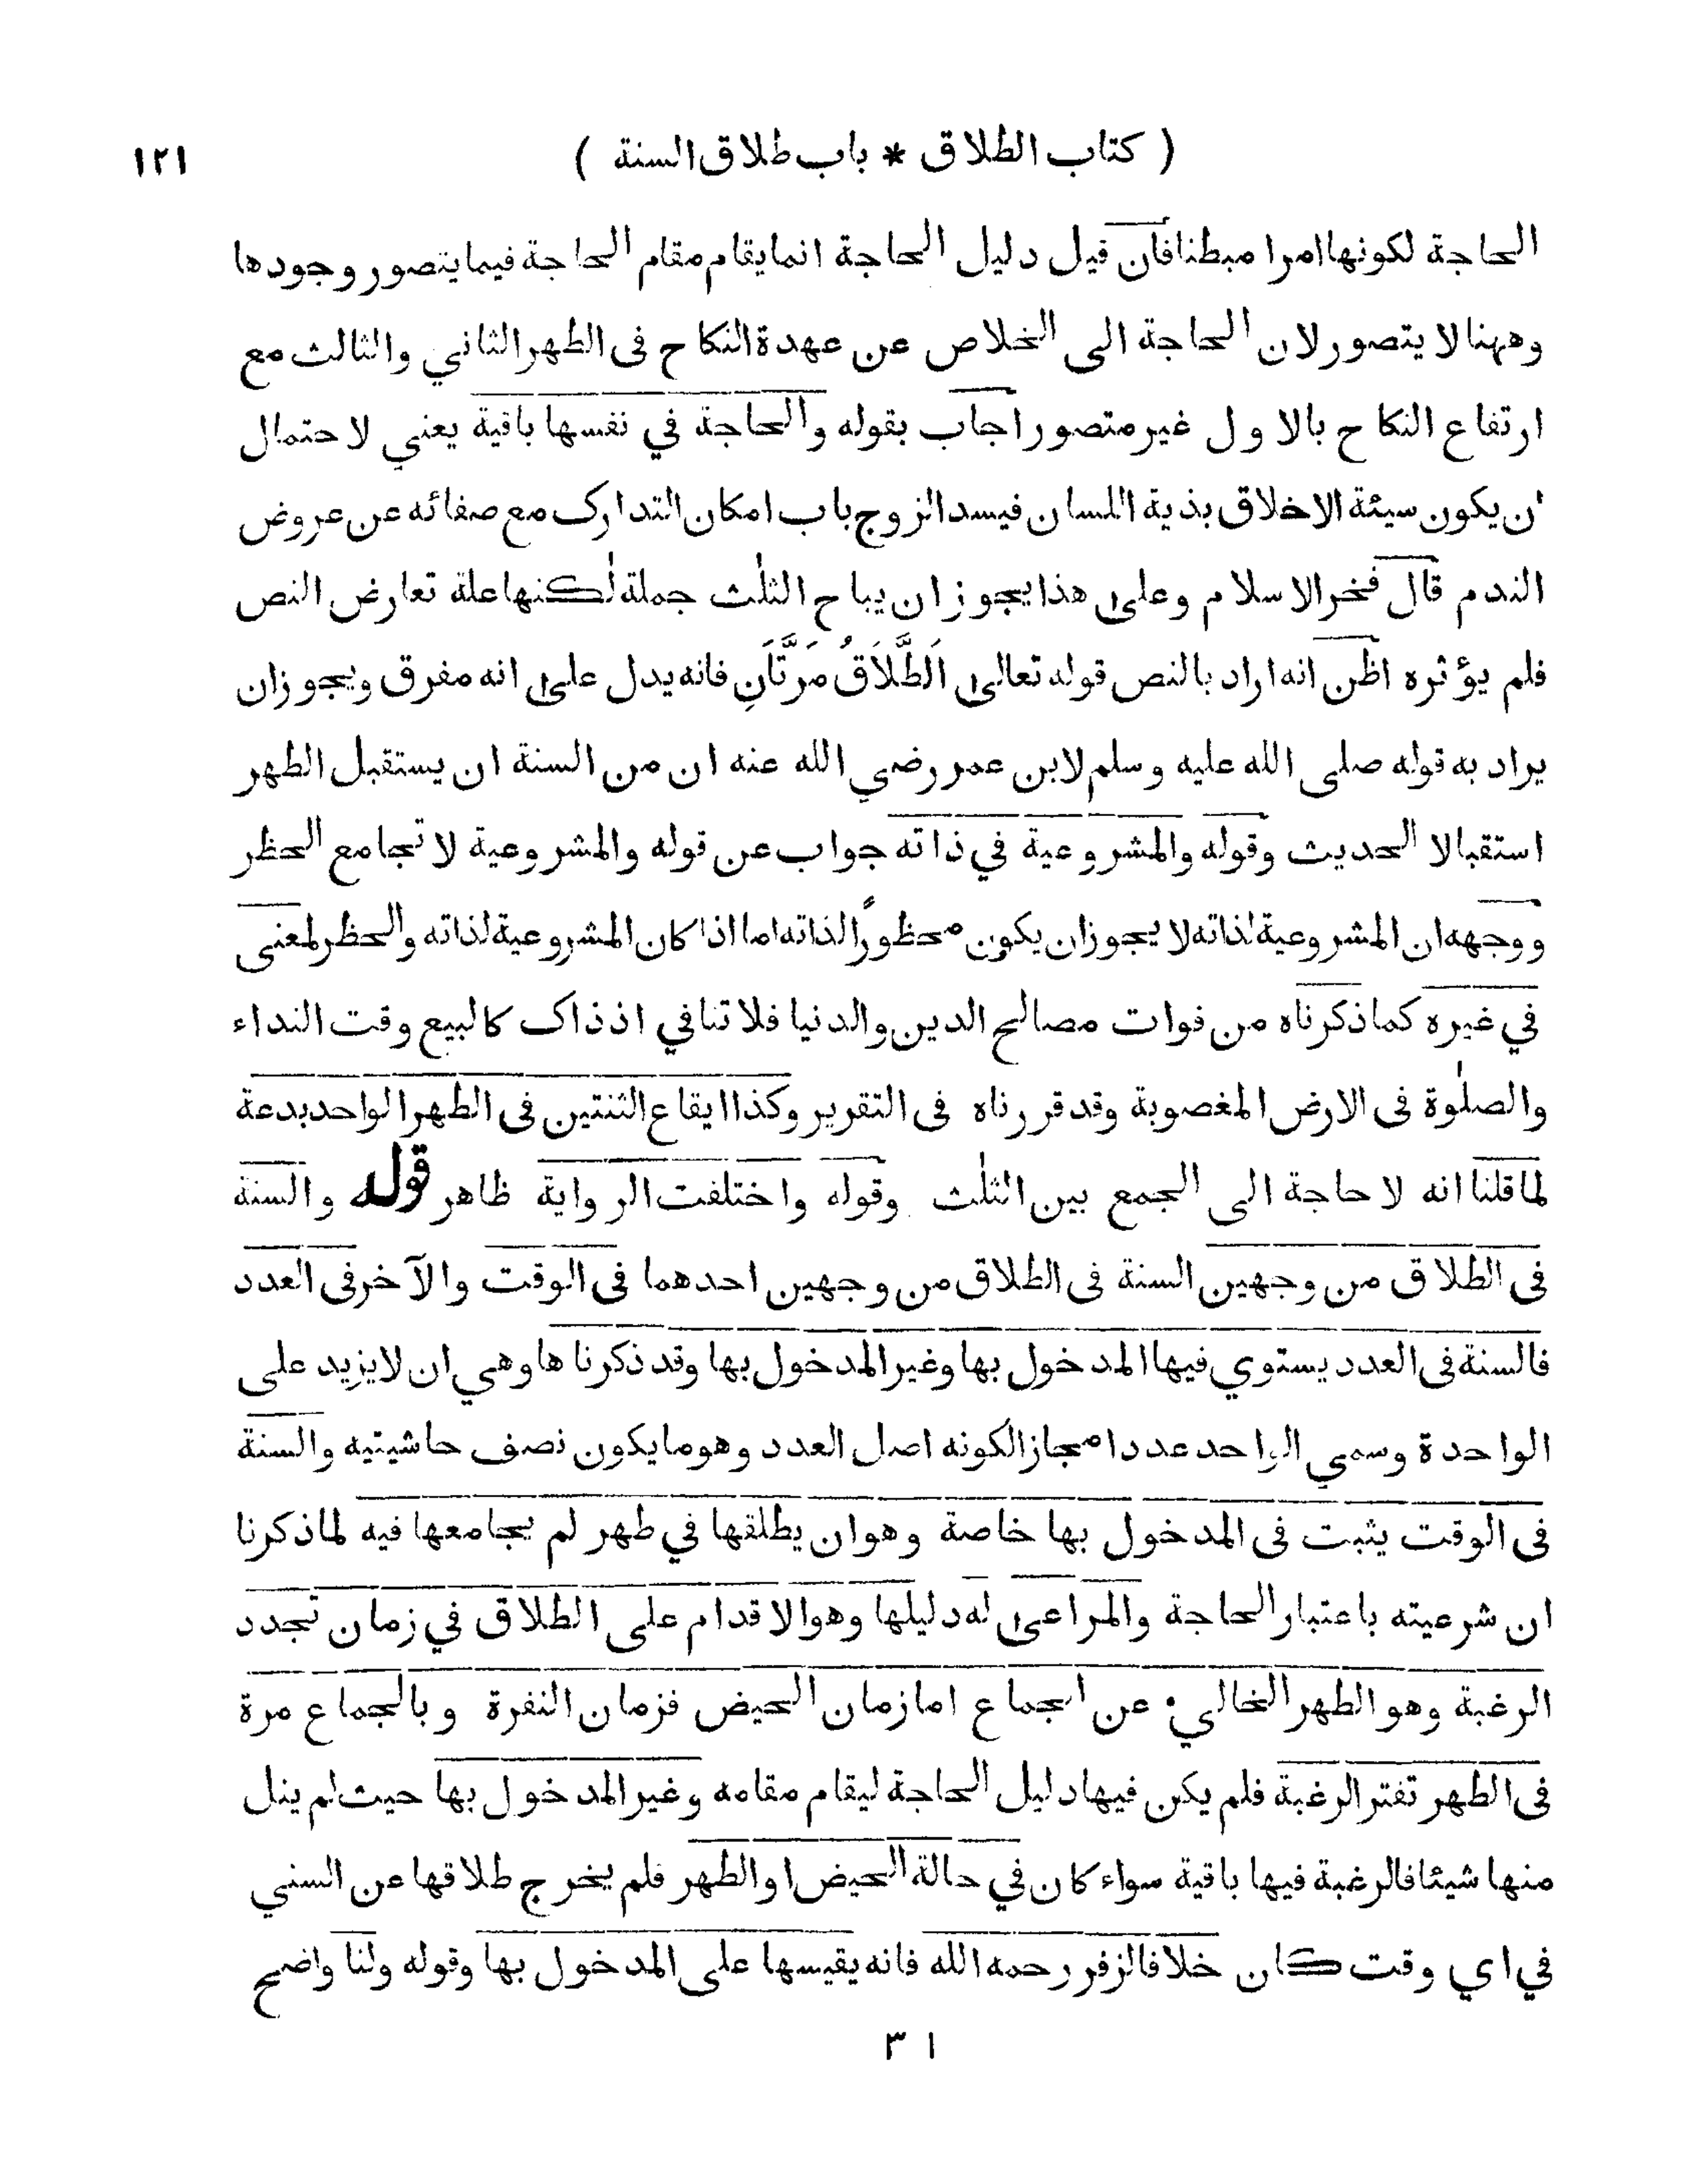 ( كتاب الطلاق * باب طلاق السنة ) ١٢١
الحاجة لكونها امرا مبطنا فان قيل دليل الحاجة انما يقام مقام الحاجة فيما يتصور وجودها
وههنا لا يتصور لان الحاجة الى الخلاص عن عهدة النكاح فى الطهر الثاني والثالث مع
ارتفاع النكاح بالاول غير متصور اجاب بقوله والحاجة في نفسها باقية يعني لاحتمال
ان يكون سيئة الاخلاق بذية اللسان فيسد الزوج باب امكان التدارك مع صفائه عن عروض
الندم قال فخر الاسلام وعلى هذا يجوز ان يباح الثلٰث جملة لٰكنها علة تعارض النص
فلم يؤثره اظن انه اراد بالنص قوله تعالى اَلطَّلَاقُ مَرَّتَانِ فانه يدل على انه مفرق ويجوز ان
يراد به قوله صلى الله عليه وسلم لابن عمر رضي الله عنه ان من السنة ان يستقبل الطهر
استقبالا الحديث وقوله والمشروعية في ذاته جواب عن قوله والمشروعية لا تجامع الحظر
ووجهه ان المشروعية لذاته لا يجوز ان يكون محظورًا لذاته اما اذا كان المشروعية لذاته والحظر لمعنى
في غيره كما ذكرناه من فوات مصالح الدين والدنيا فلا تنافي اذ ذاك كالبيع وقت النداء
والصلٰوة فى الارض المغصوبة وقد قررناه فى التقرير وكذا ايقاع الثنتين فى الطهر الواحد بدعة
لما قلنا انه لا حاجة الى الجمع بين الثلٰث وقوله واختلفت الرواية ظاهر قوله والسنة
فى الطلاق من وجهين السنة فى الطلاق من وجهين احدهما فى الوقت والآخر فى العدد
فالسنة فى العدد يستوي فيها المدخول بها وغير المدخول بها وقد ذكرناها وهي ان لا يزيد على
الواحدة وسمي الواحد عددا مجازا لكونه اصل العدد وهو ما يكون نصف حاشيتيه والسنة
فى الوقت يثبت فى المدخول بها خاصة وهو ان يطلقها في طهر لم يجامعها فيه لما ذكرنا
ان شرعيته باعتبار الحاجة والمراعى له دليلها وهو الاقدام على الطلاق في زمان تجدد
الرغبة وهو الطهر الخالي عن الجماع اما زمان الحيض فزمان النفرة وبالجماع مرة
فى الطهر تفتر الرغبة فلم يكن فيها دليل الحاجة ليقام مقامه وغير المدخول بها حيث لم ينل
منها شيئا فالرغبة فيها باقية سواء كان في حالة الحيض او الطهر فلم يخرج طلاقها عن السني
في اي وقت كان خلافا لزفر رحمه الله فانه يقيسها على المدخول بها وقوله ولنا واضح
٣١